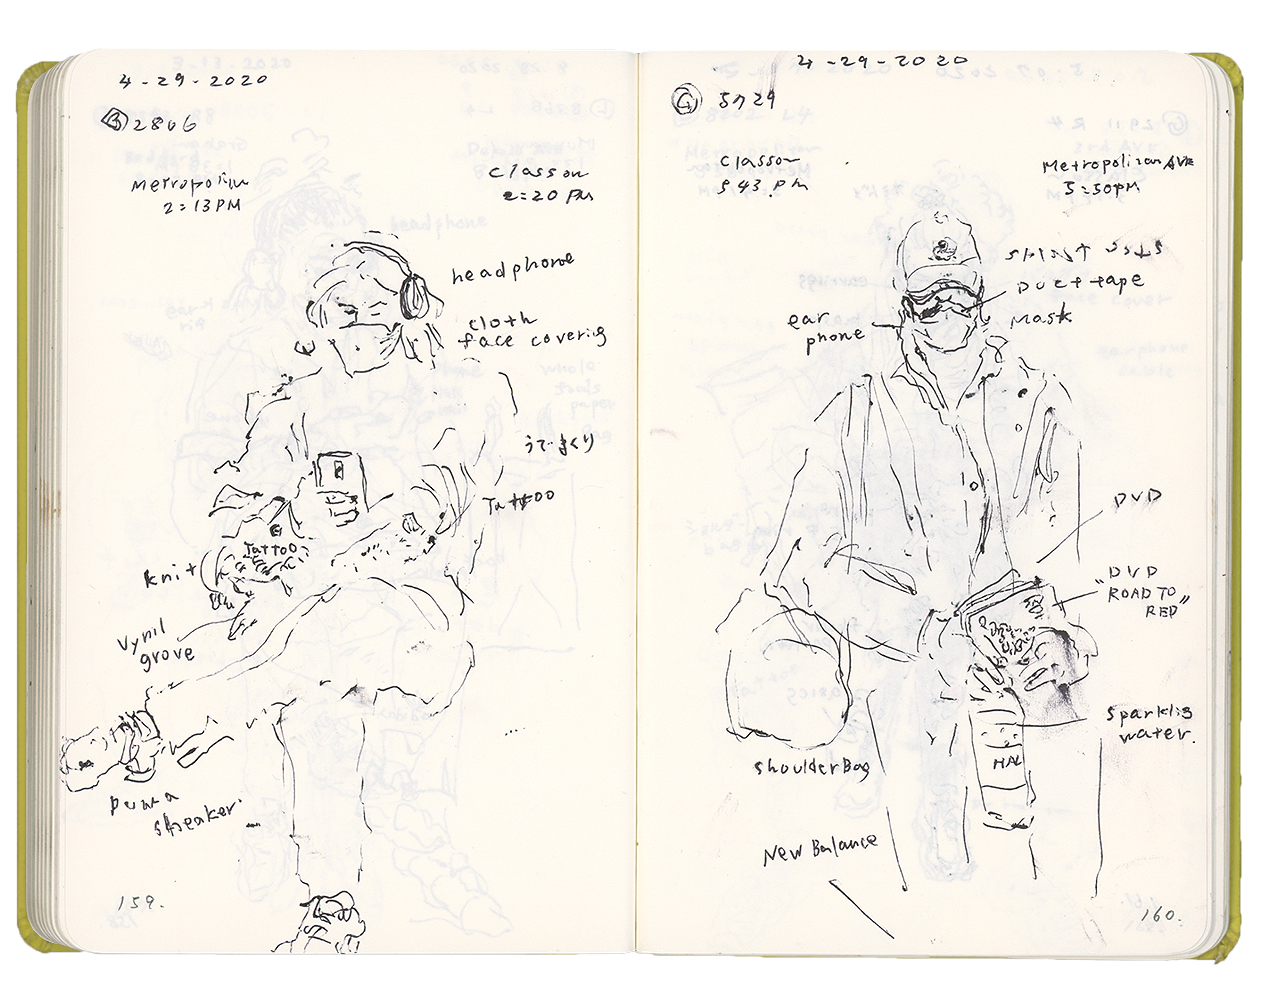 4-29-2020
B 2806
Metropolitan
2:13PM
Classon
2:20 PM
headphone
cloth
face covering
うでまくり
Tattoo
Tattoo
knit
vynil
grove
puma
sneaker
159.
4-29-2020
G 5729
Classon
5 43 pm
Metropolitan AVE
5:50pm
Duct tape
Mask
ear
phone
DVD
"DVD
ROAD TO
RED"
sparklig
water.
HAL
shoulder Bag
New Balance
160.